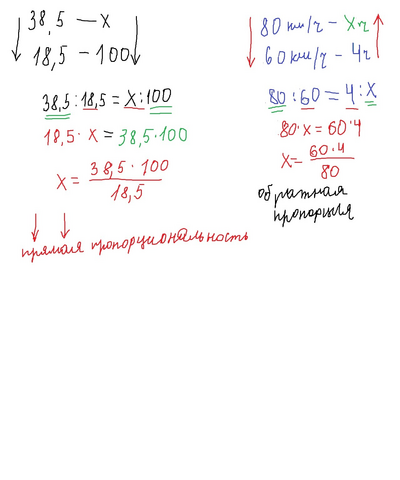 38,5 — x
18,5 — 100
38,5 : 18,5 = x : 100
18,5 · x = 38,5 · 100
x = 38,5 · 100 / 18,5
прямая пропорциональность
80 км/ч — x ч
60 км/ч — 4 ч
80 : 60 = 4 : x
80 · x = 60 · 4
x = 60 · 4 / 80
обратная
пропорция